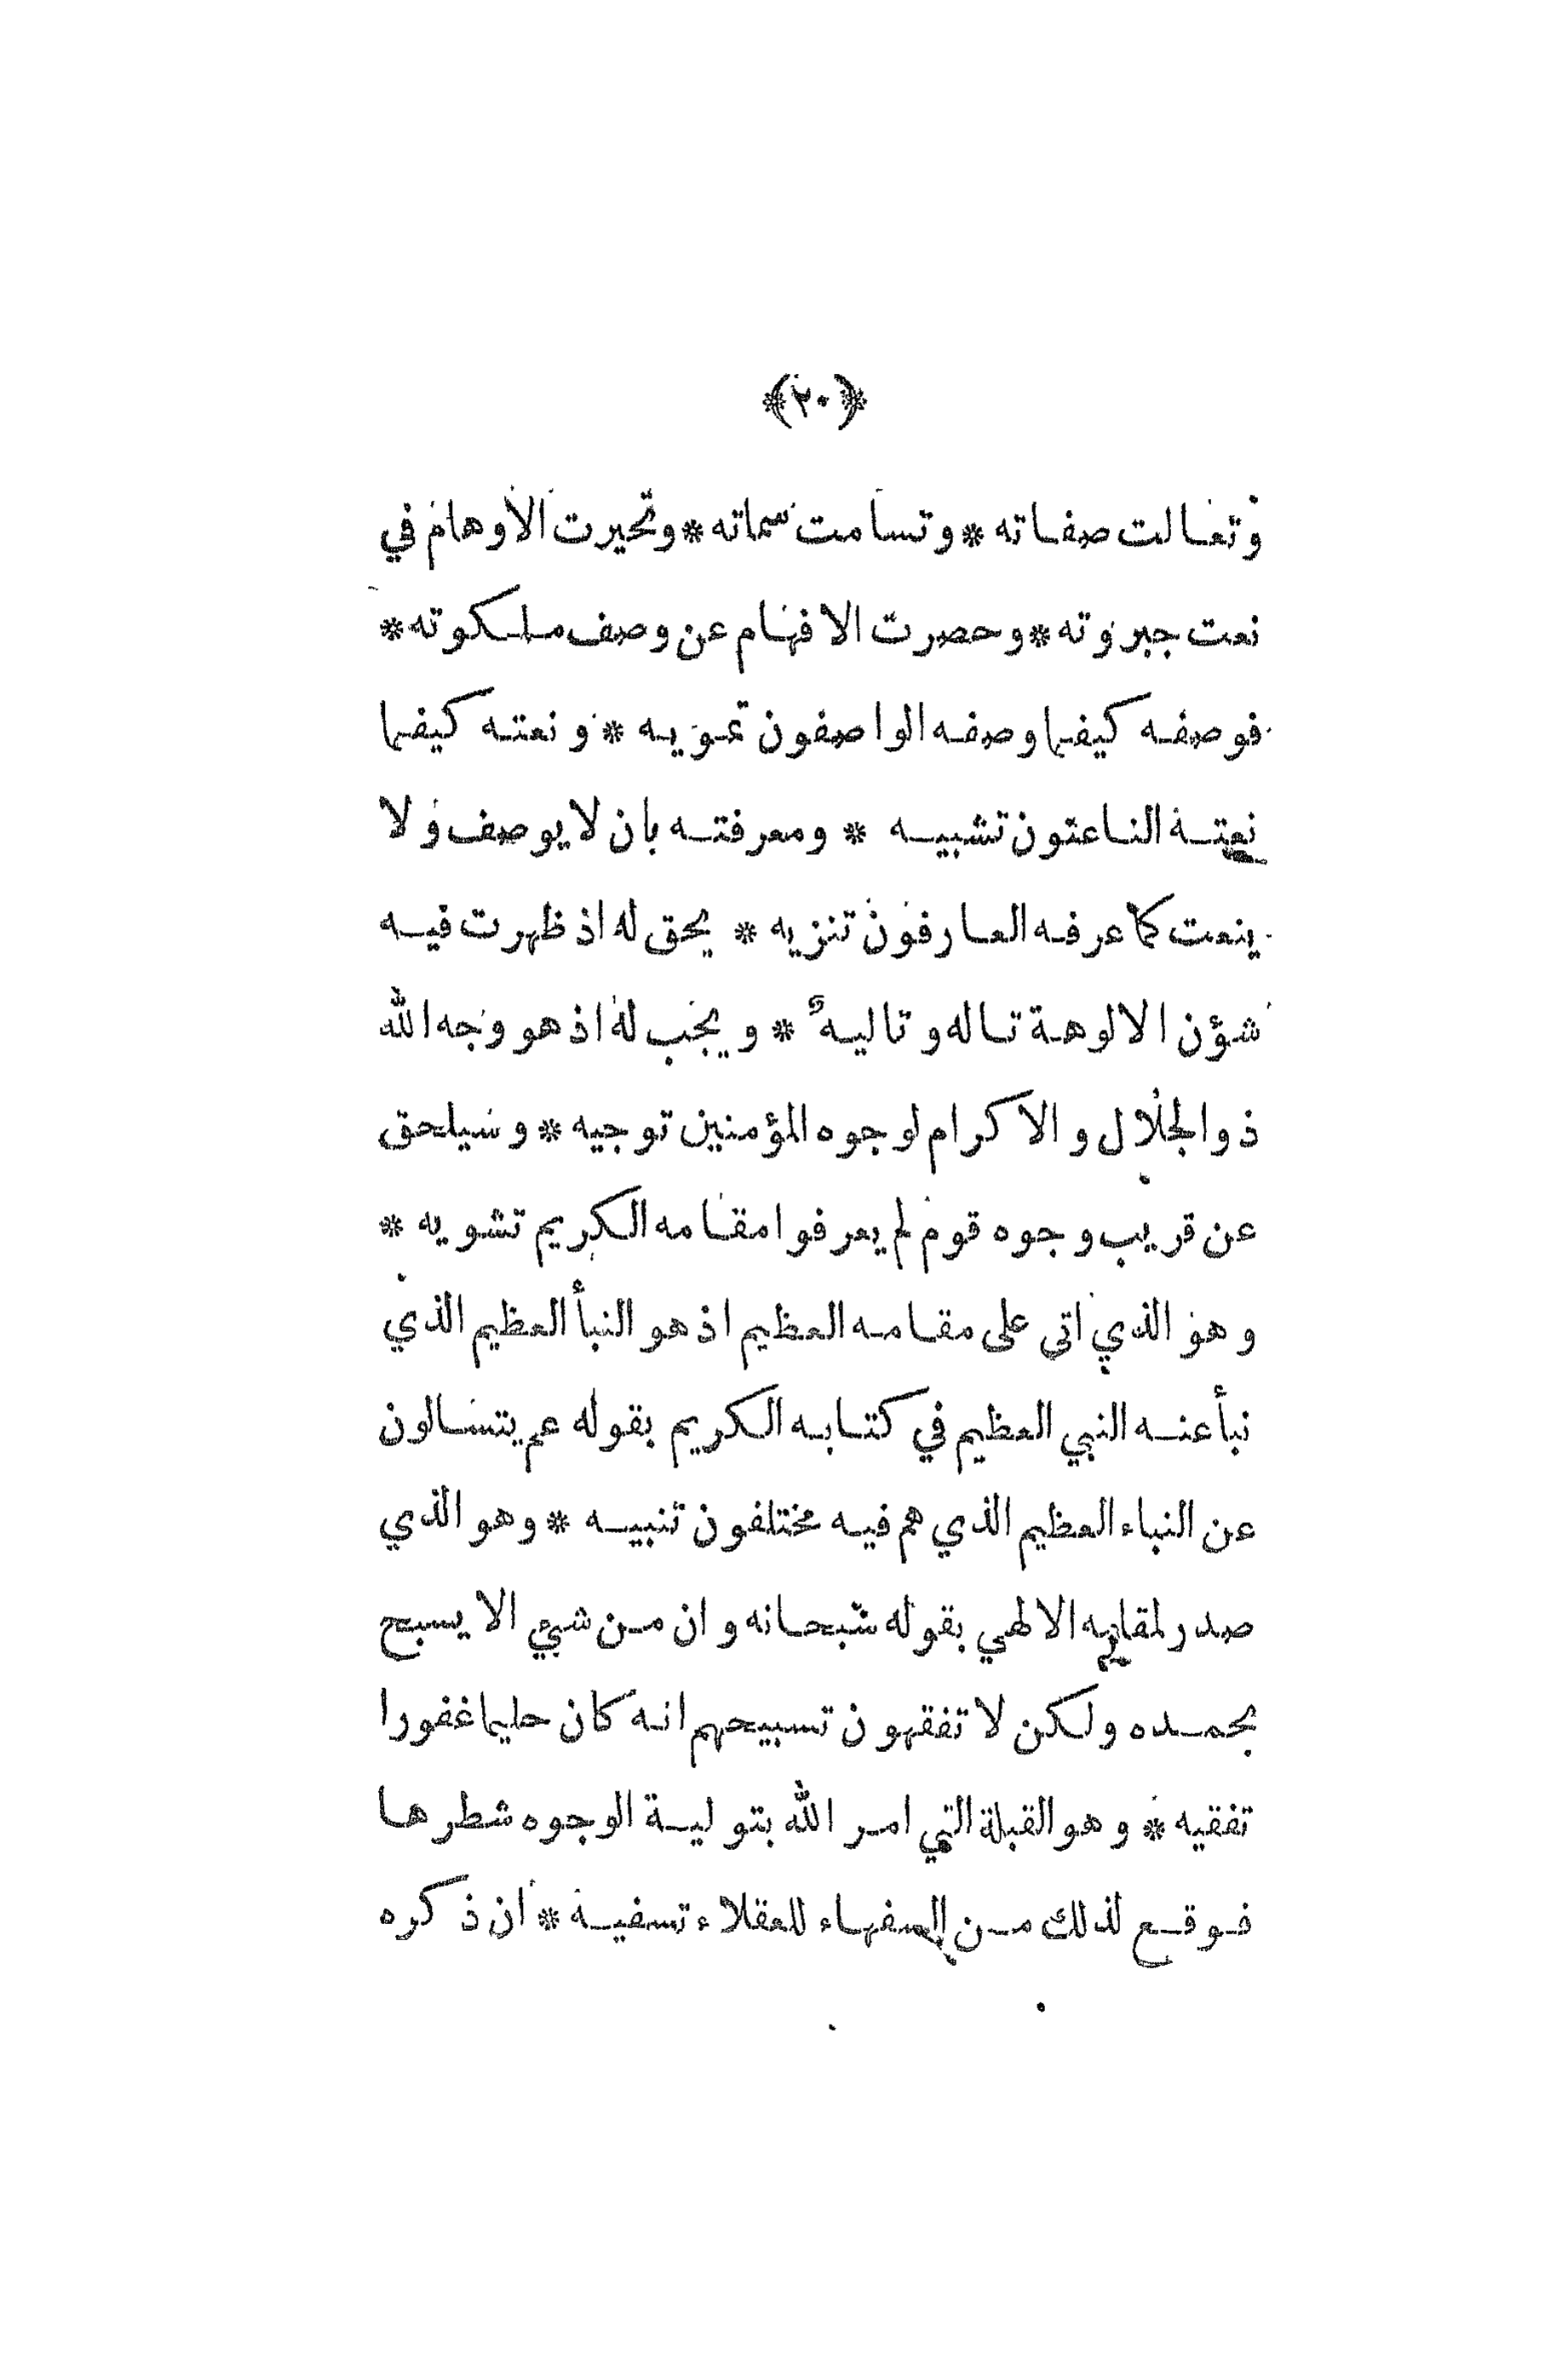 ﴿٢٠﴾
وتعالت صفاته * وتسامت سماته * وتحيرت الاوهام في
نعت جبروته * وحصرت الافهام عن وصف ملكوته *
فوصفه كيفما وصفه الواصفون تمويه * ونعته كيفما
نعته الناعتون تشبيه * ومعرفته بان لا يوصف ولا
ينعت كما عرفه العارفون تنزيه * يحق له اذ ظهرت فيه
شؤن الالوهة تاله وتاليه * ويجب له اذ هو وجه الله
ذو الجلال والاكرام لوجوه المؤمنين توجيه * وسيلحق
عن قريب وجوه قوم لم يعرفوا مقامه الكريم تشويه *
وهو الذي اتى على مقامه العظيم اذ هو النبأ العظيم الذي
نبأ عنه النبي العظيم في كتابه الكريم بقوله عم يتسالون
عن النباء العظيم الذي هم فيه مختلفون تنبيه * وهو الذي
صدر لمقامه الالهي بقوله سبحانه وان من شيء الا يسبح
بحمده ولكن لا تفقهون تسبيحهم انه كان حليما غفورا
تفقيه * وهو القبلة التي امر الله بتولية الوجوه شطرها
فوقع لذلك من السفهاء للعقلاء تسفيه * ان ذكره